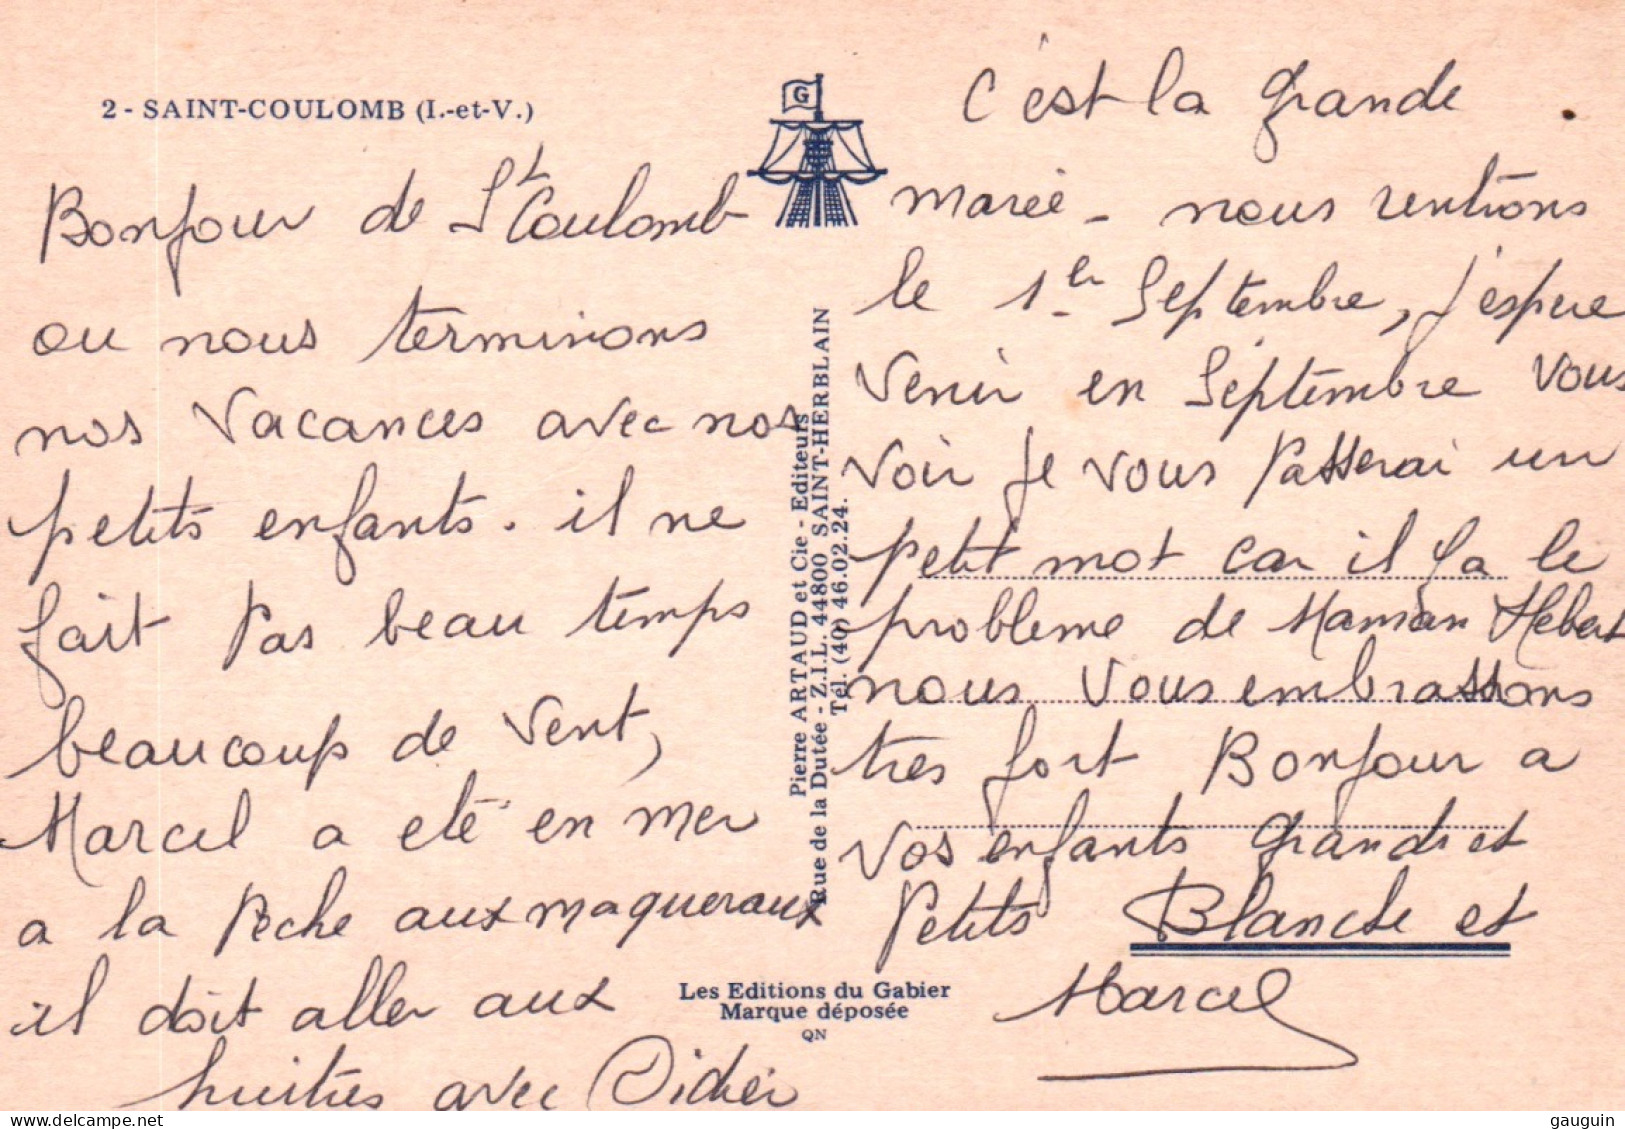 2 - SAINT-COULOMB (I.-et-V.)
Bonjour de St Coulomb
ou nous terminons
nos Vacances avec nos
petits enfants. il ne
fait Pas beau temps
beaucoup de Vent,
Marcel a eté en mer
a la Pêche aux maqueraux
il doit aller aux
huitres avec Didier
G
Pierre ARTAUD et Cie - Editeurs
Rue de la Dutée - Z.I.L. 44800 SAINT-HERBLAIN
Tél. (40) 46.02.24.
Les Editions du Gabier
Marque déposée
QN
C'est la Grande
marée - nous rentrons
le 1er Septembre, j'espere
Venir en Septembre Vous
Voir Je Vous Passerai un
petit mot car il y a le
probleme de Maman Hebert
nous Vous embrassons
tres fort Bonjour a
Vos enfants Grands et
Petits Blanche et
Marcel
gauguin